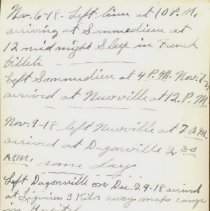 Nov. 6-18 - Left line at 10 P.M.
arriving at Sommedieue at
12 midnight Slept in French
billets
Left Sommedieue at 4 P.M. Nov. 7-18
arrived at Neuville at 12 P.M.
Nov. 9-18 left Neuville at 7 A.M.
arrived at Dagonville 2 30
P.M. some days
Left Dagonville on Dec. 29-18 arrived
at 3 Kilos away
in Hospital